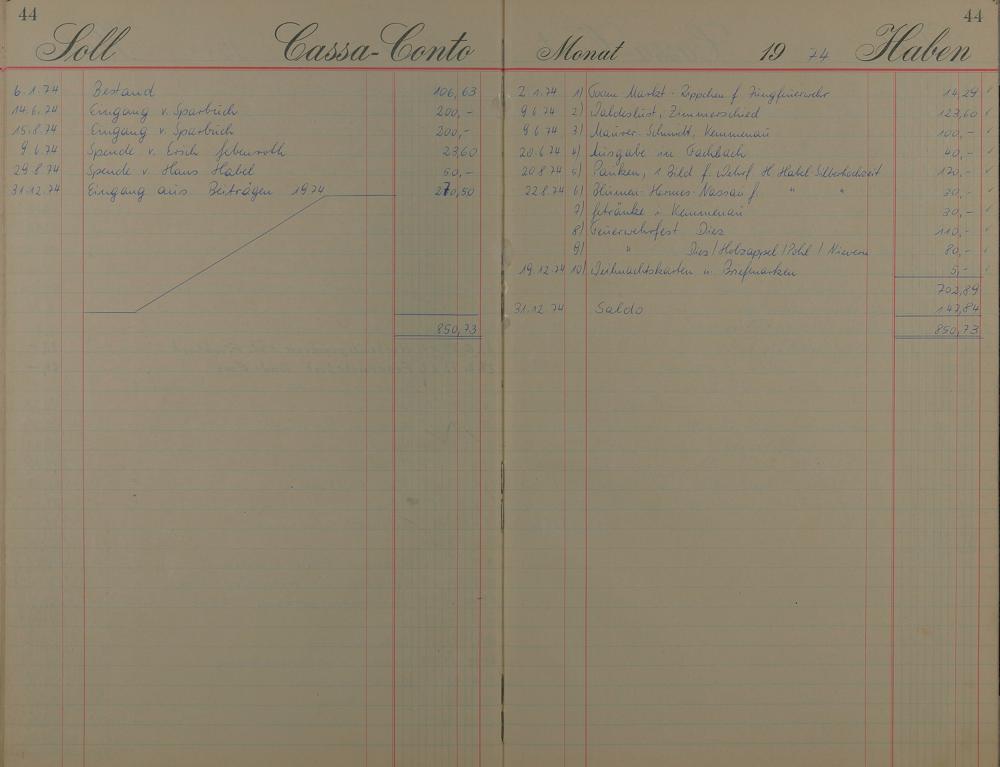 44
Soll Cassa-Conto
6.1.74 Bestand 106,63
14.6.74 Eingang v. Sparbuch 200,-
15.8.74 Eingang v. Sparbuch 200,-
9.6.74 Spende v. Erich 23,60
29.8.74 Spende v. Hans Habel 50,-
31.12.74 Eingang aus Beiträgen 1974 270,50
850,73
44
Monat 19 74 Haben
2.1.74 1) Markt - f. Jungfeuerwehr 14,29 ✓
9.6.74 2) Waldeslust, Zimmerschied 123,60 ✓
9.6.74 3) Mauser-Schmidt, Kemmenau 100,- ✓
20.6.74 4) Ausgabe in Fachbach 40,- ✓
20.8.74 5) 1 Bild f. Wehrf. H. Habel Silberhochzeit 170,- ✓
22.8.74 6) Blumen-Hermes-Nassau f. " " 30,- ✓
7) Getränke i. Kemmenau 30,- ✓
8) Feuerwehrfest Dies 110,- ✓
9) " Dies/Holzappel/Pohl/Nievern 80,- ✓
19.12.74 10) Weihnachtskarten u. Briefmarken 5,- ✓
702,89
31.12.74 Saldo 147,84
850,73